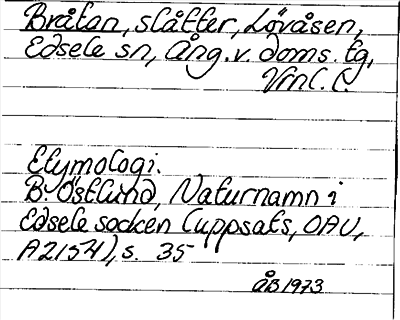 Bråtan, slåtter, Lövåsen,
Edsele sn, Ång. v. doms. tg,
Vnl. l.
Etymologi.
B. Östlund, Naturnamn i
Edsele socken (uppsats, OAU,
A2154), s. 35
ÅB 1973